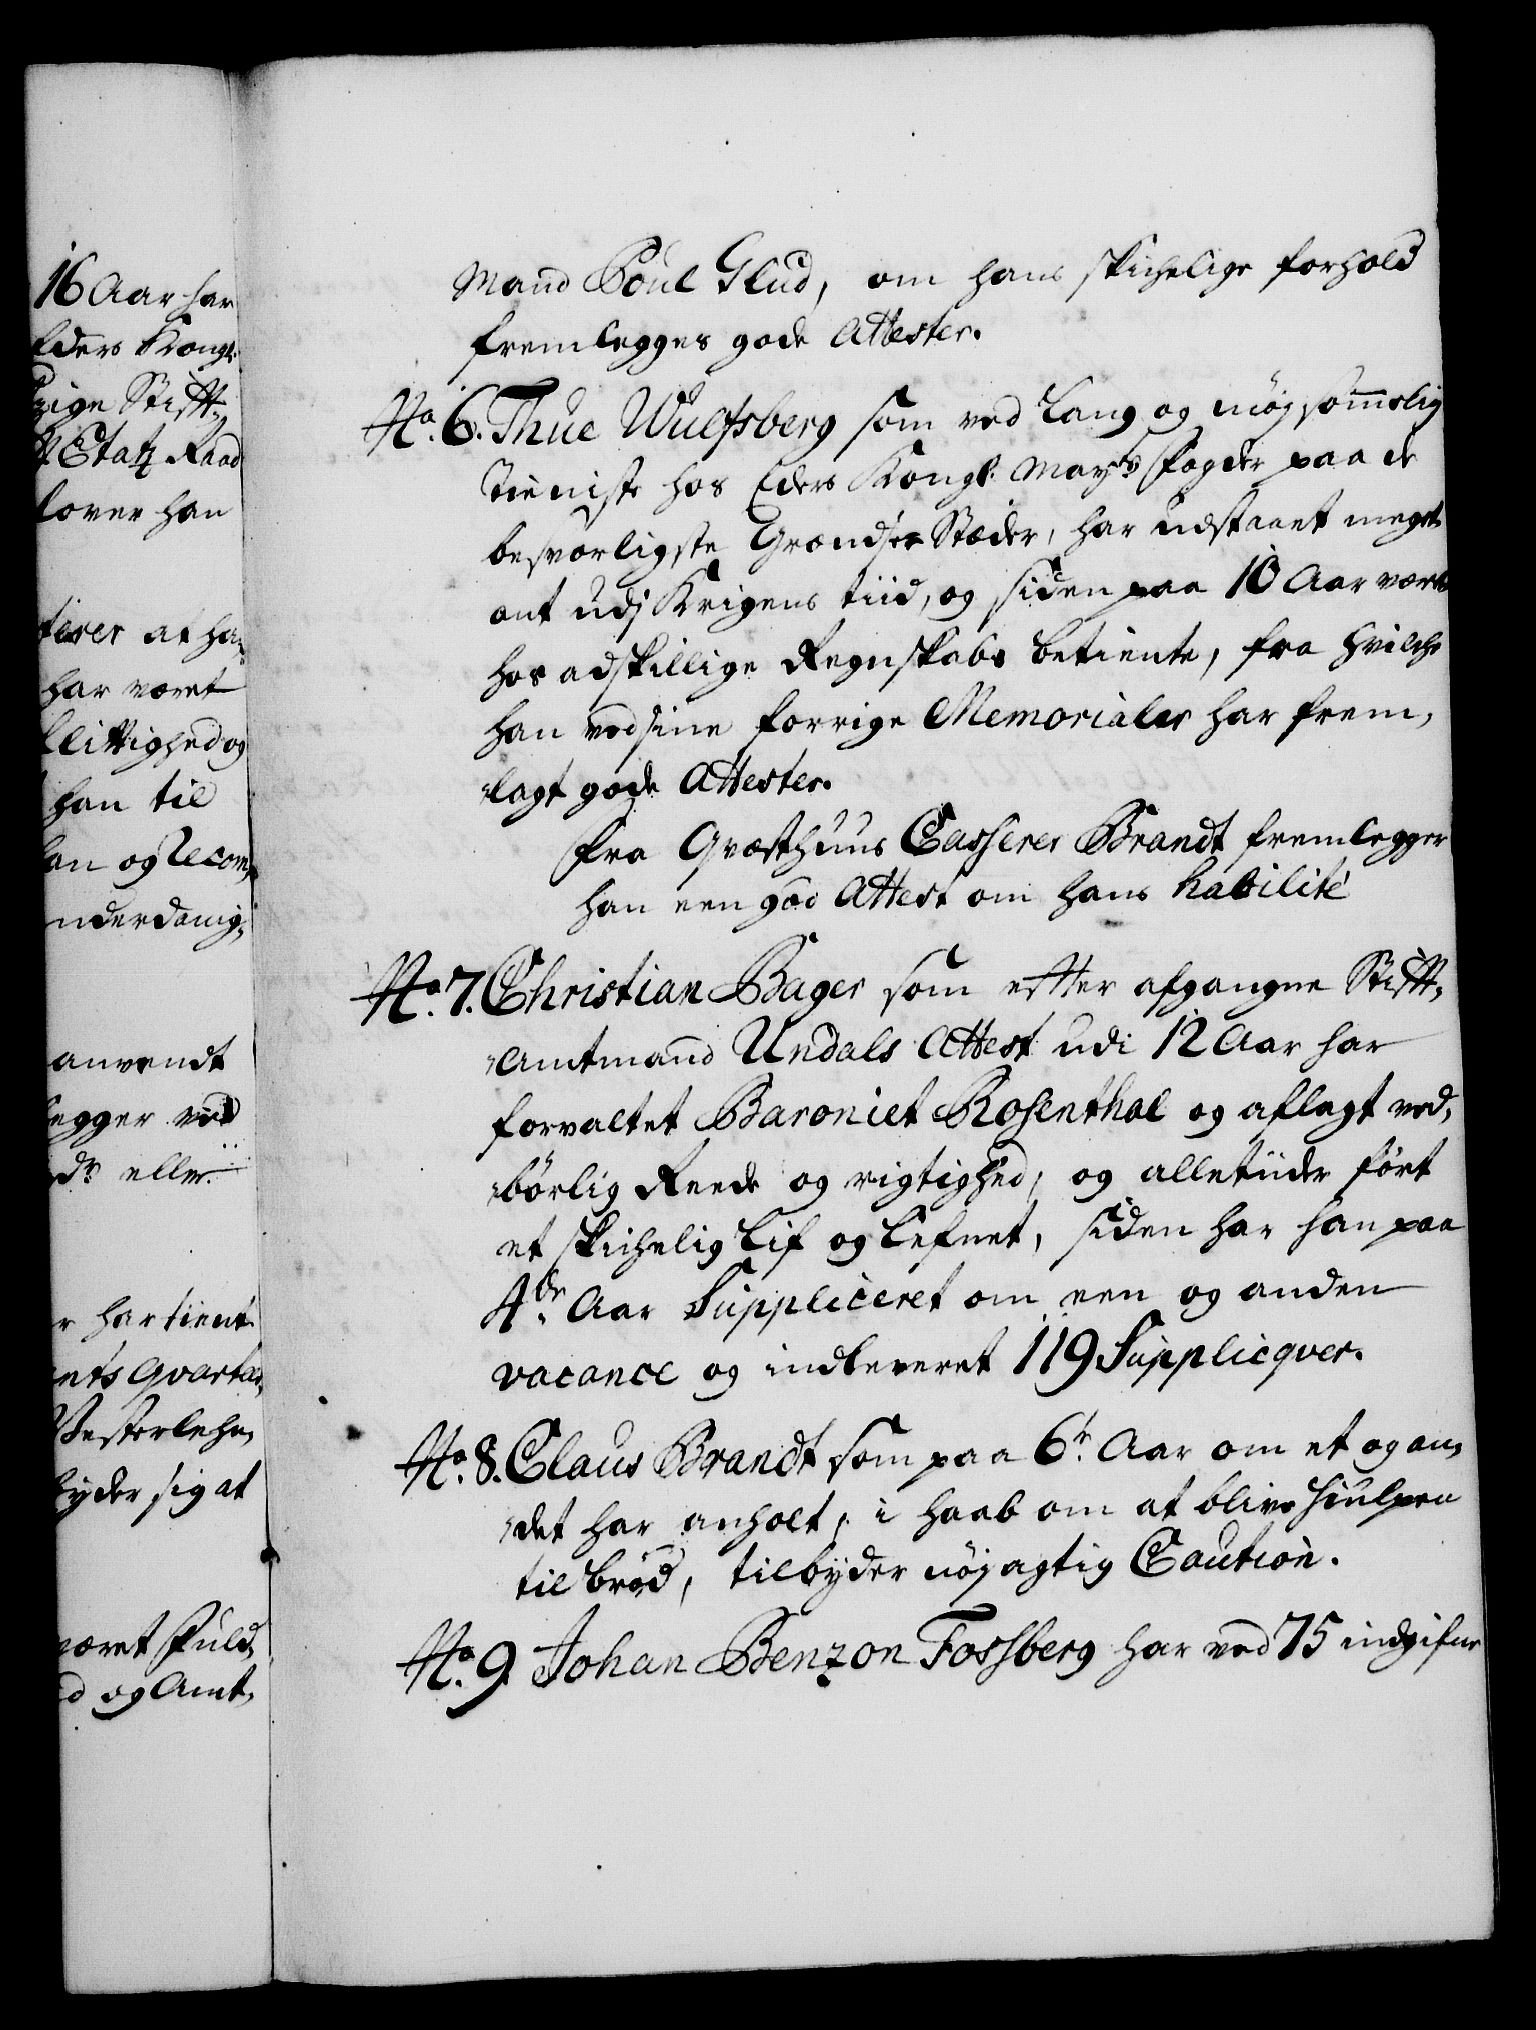 16 Aar har
Eders Kongl.
Stift,
Etatz Raad
lover han
at han
har været
flittighed og
han til
og Recom,
nderdanig,
anvendt
legger ved
eller
har tient
Qvartal,
Vesterlehn,
byder sig at
været fuld,
og Amt,
Mand Poul Glud, om hans skichelige forhold
fremlegges gode Attester.
No. 6. Thue Wulfsberg som ved lang og møysommelig
Tieniste hos Eders Kongl: May:ts fogder paa de
besværligste Grændser Stæder, har udstaaet meget
ont udj Krigens tiid, og siden paa 10 Aar været
hos adskillige Regnskabs betiente, fra hvilche
han ved sine forrige Memorialer har frem,
lagt gode Attester.
Fra Qvæsthuus Casserer Brandt fremlegger
han een god Attest om hans habilité
No. 7. Christian Bager som efter afgangne Stift,
Amtmand Undals Attest udi 12 Aar har
forvaltet Baroniet Rosenthal og aflagt ved,
børlig Reede og rigtighed, og alletiider ført
et skichelig lif og lefnet, siden har han paa
4.de Aar Suppliceret om een og anden
vacance og indleveret 119 Supplicqver.
No. 8. Claus Brandt som paa 6.te Aar om et og an,
det har anholt, i haab om at blive hiulpen
til brød, tilbyder nøyagtig Caution.
No. 9 Johan Benzon Fossberg har ved 75 indgifne